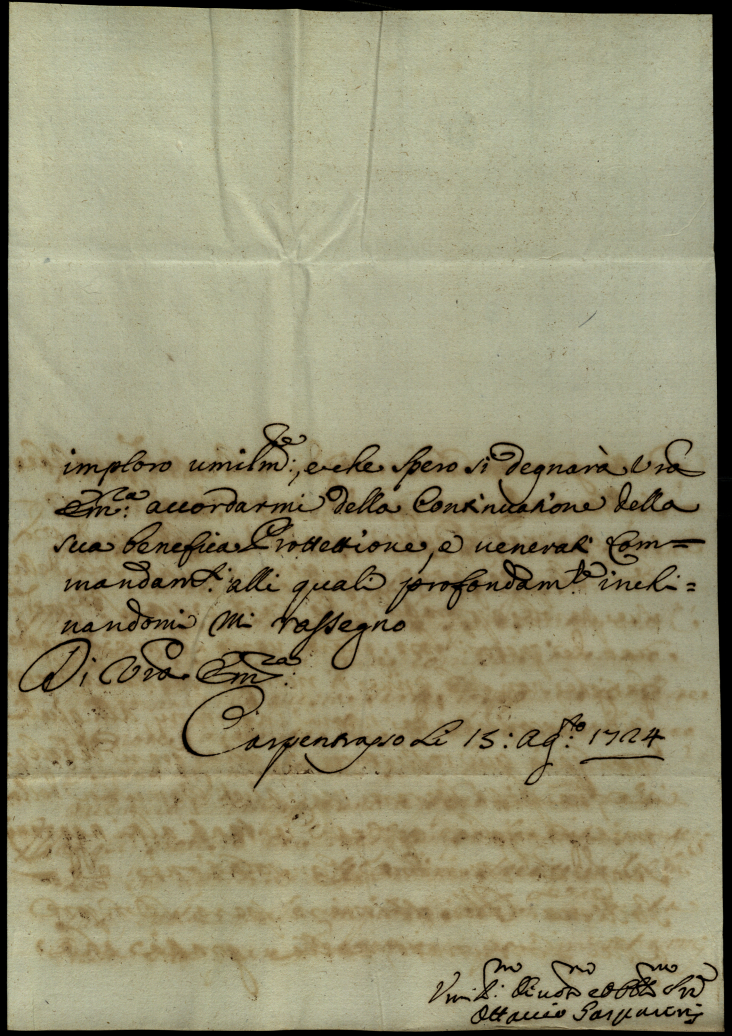 imploro umilm.te, e che spero si degnarà Vrã
Em.za accordarmi della Continuatione della
sua benefica Prottettione, e venerati Com=
mandam.ti alli quali profondam.te inchi=
nandomi mi rassegno
Di Vrã Em.za
Carpentrasso li 15: Ag.to 1724
Umil.mo Divot.mo ed Obb.mo Ser.
Ottavio Gasparini